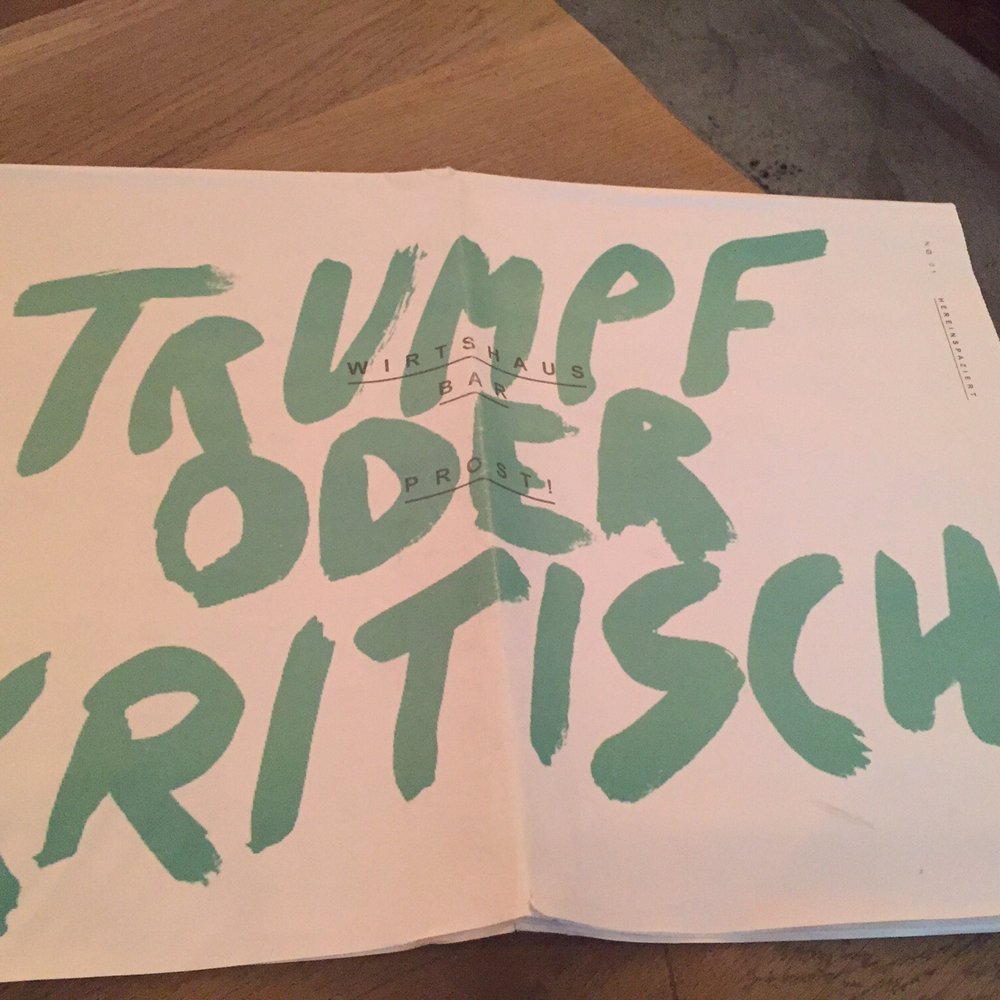 TRUMPF
ODER
KRITISCH
WIRTSHAUS
BAR
PROST!
NO. 01 HEREINSPAZIERT